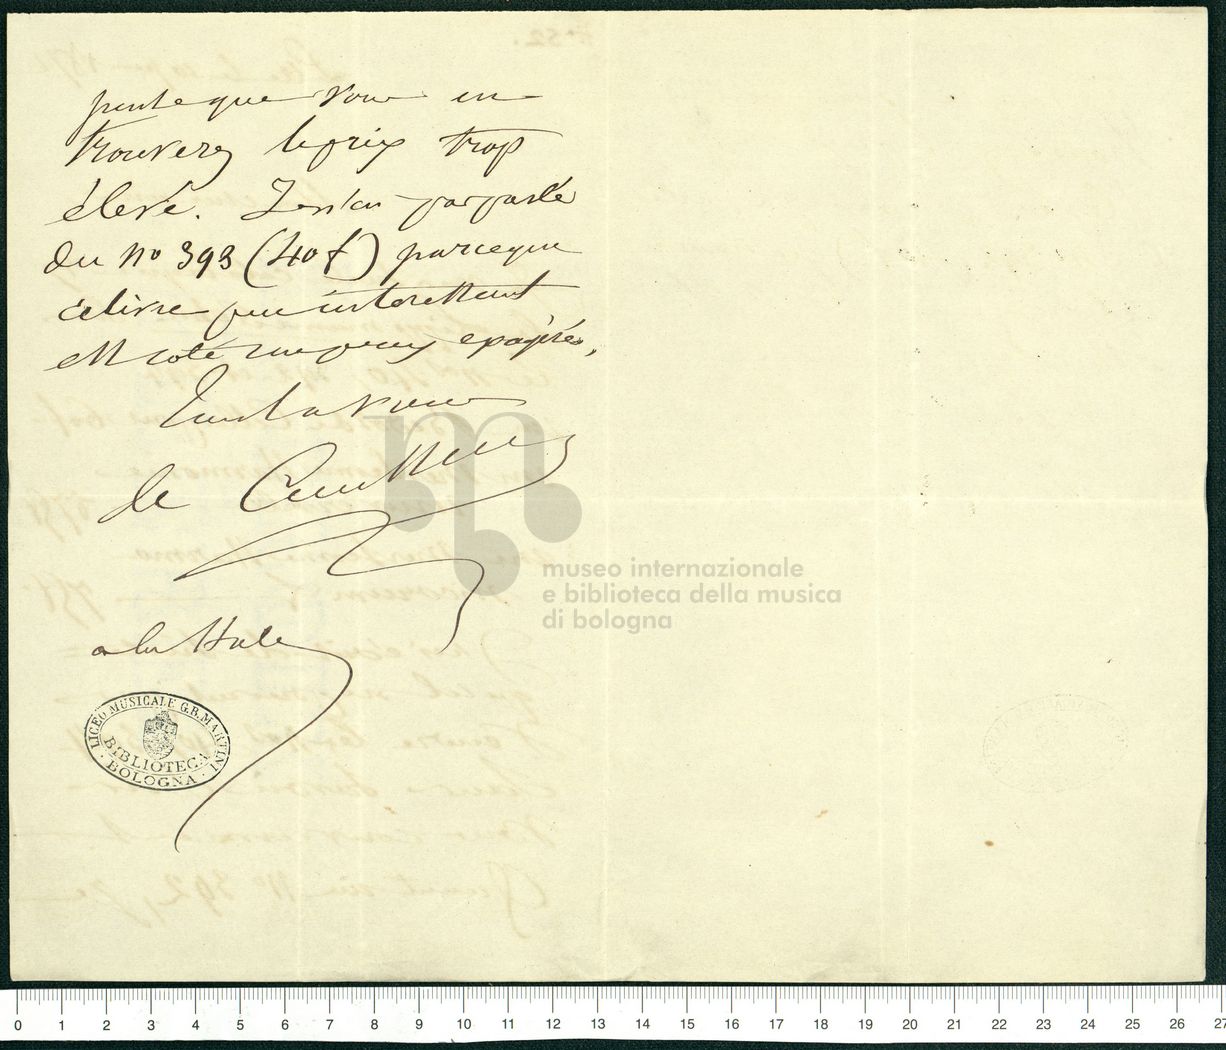 pense que vous en
trouverez le prix trop
élevé. Je n'ai pas parlé
du No 393 (40 f) parceque
ce livre peu interessant
est coté un prix exagéré,
Tout a vous
de Coussemaker
a la Hate
LICEO MUSICALE G.B. MARTINI
BIBLIOTECA
BOLOGNA
museo internazionale
e biblioteca della musica
di bologna
0 1 2 3 4 5 6 7 8 9 10 11 12 13 14 15 16 17 18 19 20 21 22 23 24 25 26 27